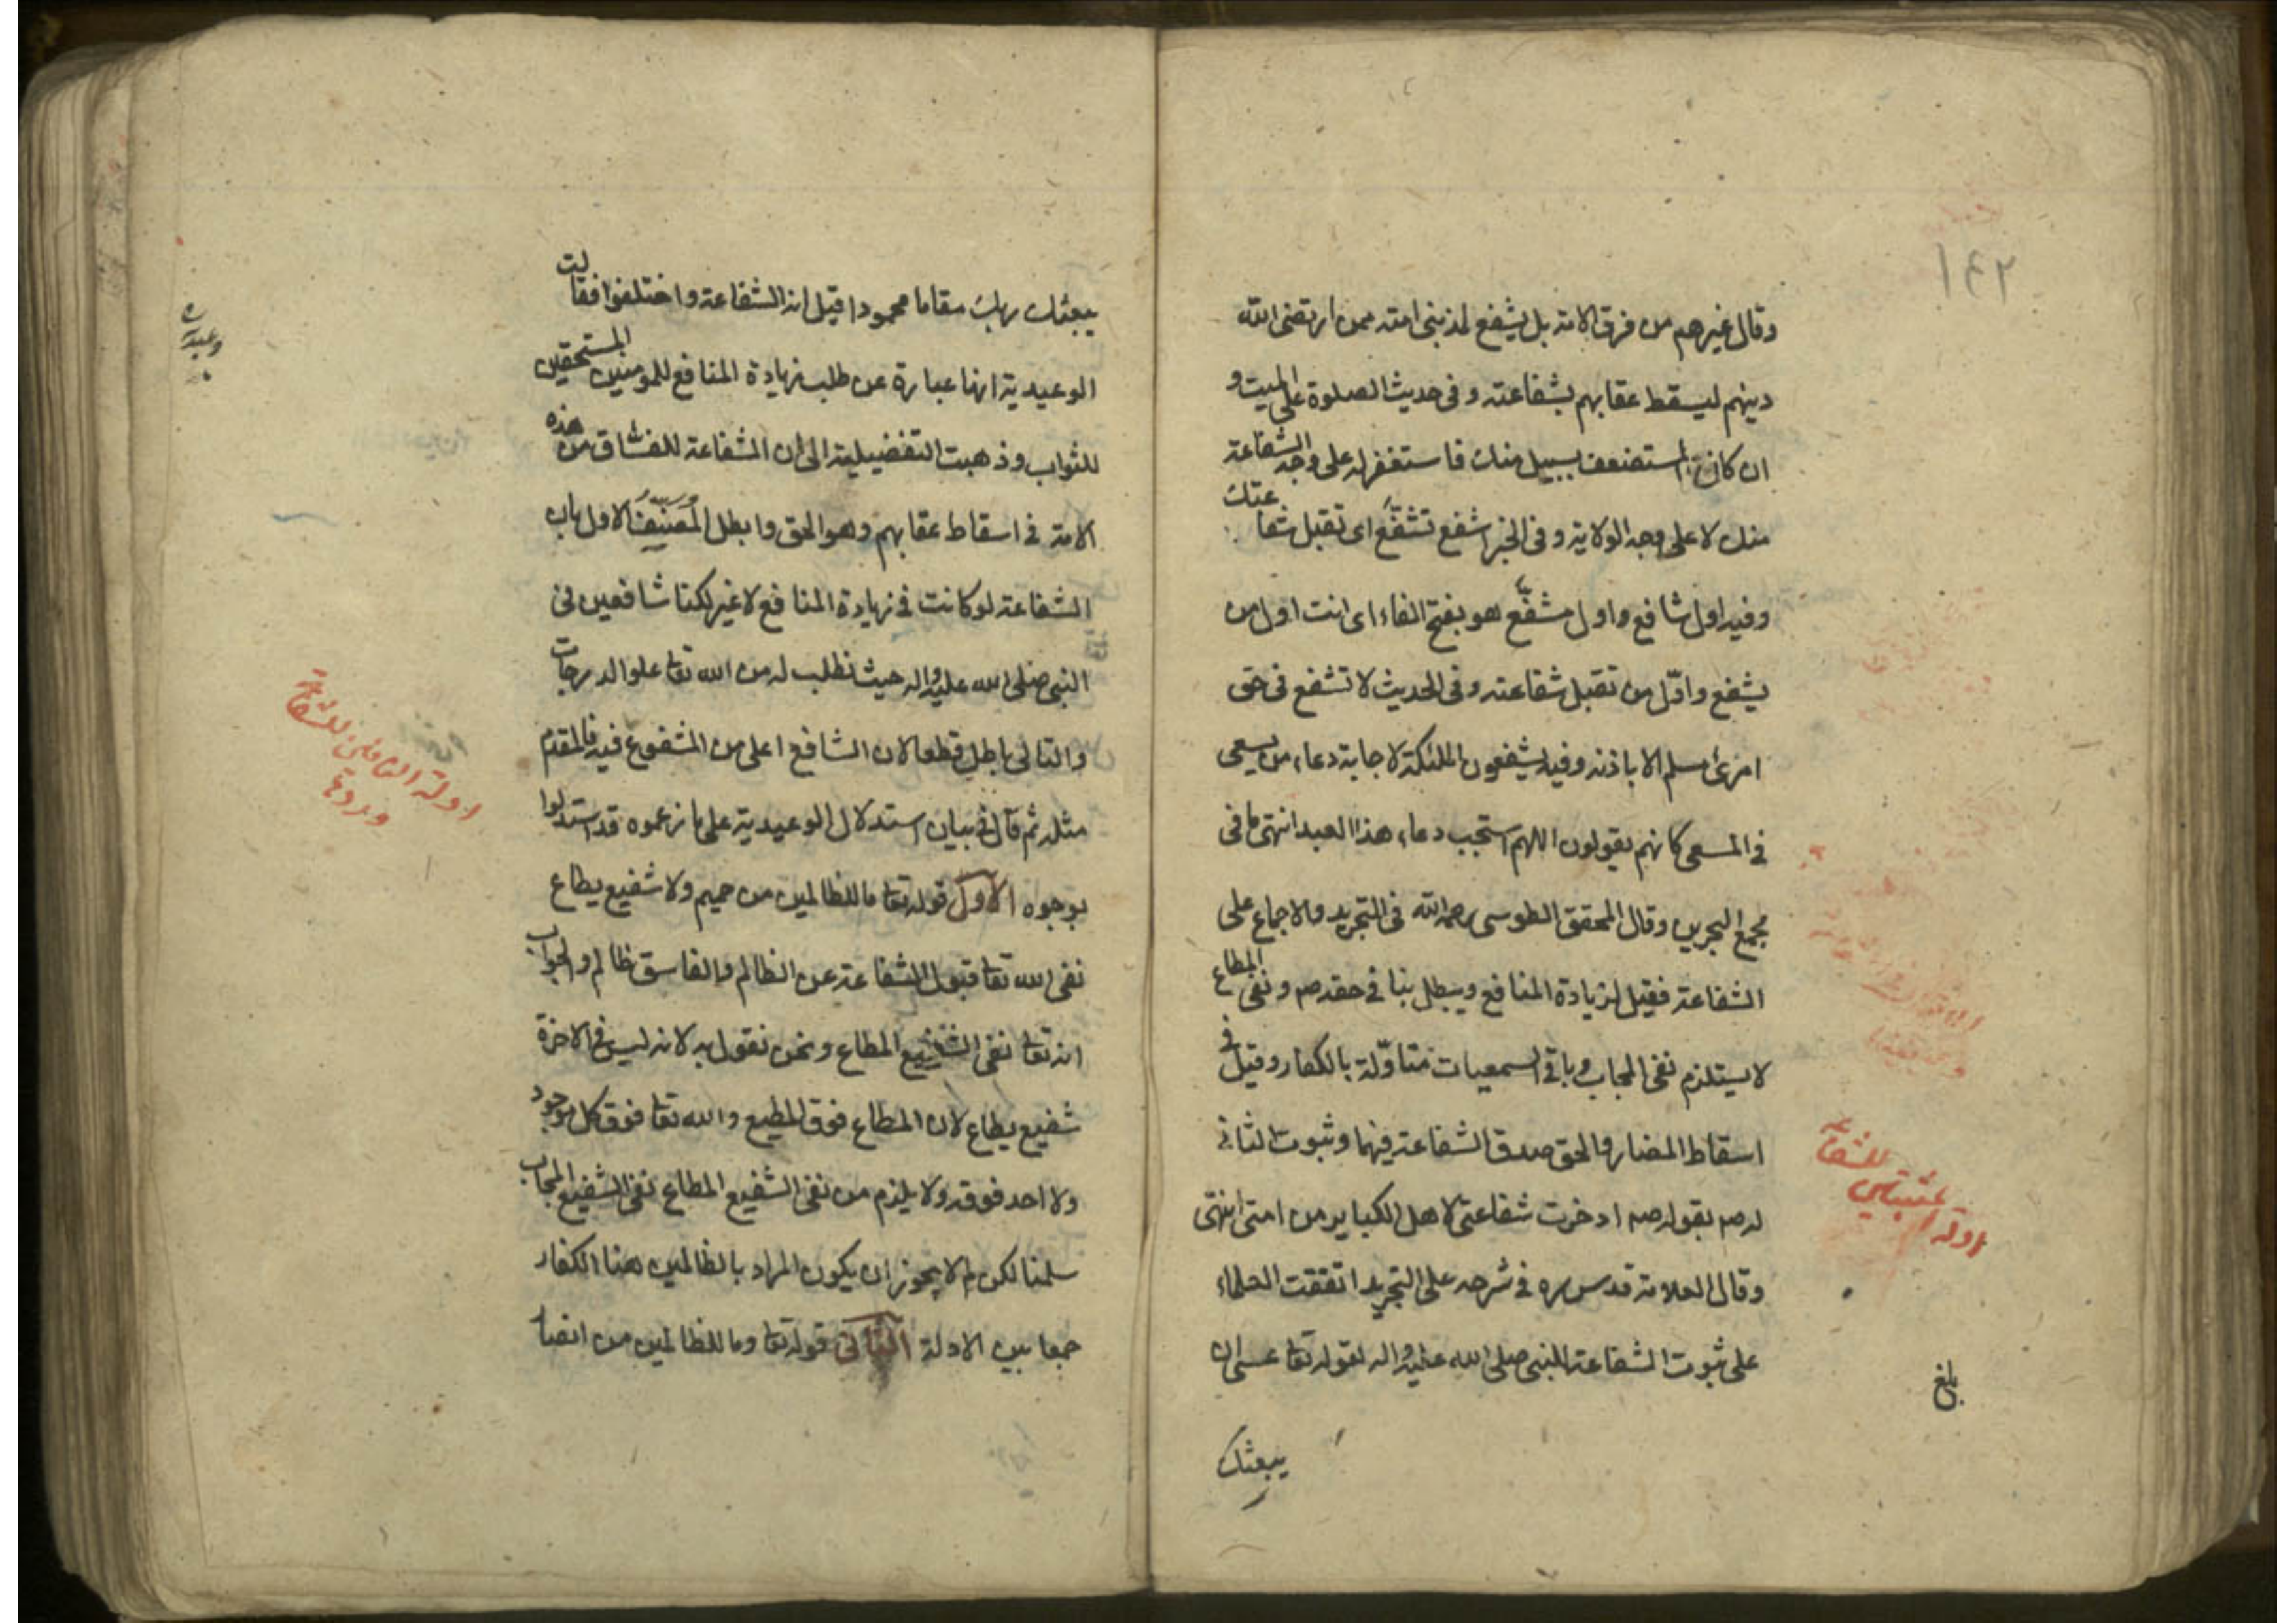 ١٤٢
وقال غيرهم من فرق الامة بل يشفع لمذنبى امته ممن ارتضى الله
دينهم ليسقط عقابهم بشفاعته وفى حديث الصلوة على الميت و
ان كان المستضعف بسبيل منك فاستغفر له على وجه الشفاعة
منك لا على وجه الولاية وفى الخبر اشفع تشفّع اى تقبل شفاعتك
وفيه اول شافع واول مشفّع هو بفتح الفاء اى انت اول من
يشفع واوّل من تقبل شفاعته وفى الحديث لا تشفع فى حق
امرئ مسلم الا باذنه وفيه يشفعون الملئكة لاجابة دعاء من يسعى
فى المسعى كانهم يقولون اللهم استجب دعاء هذا العبد انتهى ما فى
مجمع البحرين وقال المحقق الطوسى رحمه الله فى التجريد والاجماع على
الشفاعة فقيل لزيادة المنافع ويبطل بنا فى حقه صم ونفى المطاع
لا يستلزم نفى المجاب وباقى السمعيات متاوّلة بالكفار وقيل فى
اسقاط المضار والحق صدق الشفاعة فيهما وثبوت الثانى
له صم بقوله صم ادخرت شفاعتى لاهل الكباير من امتى انتهى
وقال العلامة قدس سره فى شرحه على التجريد اتفقت العلماء
على ثبوت الشفاعة للنبى صلى الله عليه واله لقوله تعا عسى ان
يبعثك
ادلة المثبتين للشفاعة
بلغ
يبعثك ربك مقاما محمودا قيل انه الشفاعة واختلفوا فقالت
الوعيدية انها عبارة عن طلب زيادة المنافع للمومنين المستحقين
للثواب وذهبت التفضيلية الى ان الشفاعة للفسّاق من هذه
الامة فى اسقاط عقابهم وهو الحق وابطل المُصَنِّفُ الاول بان
الشفاعة لو كانت فى زيادة المنافع لا غير لكنا شافعين فى
النبى صلى الله عليه واله حيث نطلب له من الله تعا علو الدرجات
والتالى باطل قطعا لان الشافع اعلى من المشفوع فيه فالمقدم
مثله ثم قال فى بيان استدلال الوعيدية على ما زعموه قد استدلوا
بوجوه الاول قوله تعا ما للظالمين من حميم ولا شفيع يطاع
نفى الله تعا قبول الشفاعة عن الظالم والفاسق ظالم والجواب
انه تعا نفى الشفيع المطاع ونحن نقول به لانه ليس فى الاخرة
شفيع يطاع لان المطاع فوق المطيع والله تعا فوق كل موجود
ولا احد فوقه ولا يلزم من نفى الشفيع المطاع نفى الشفيع المجاب
سلمنا لكن لم لا يجوز ان يكون المراد بالظالمين هنا الكفار
جمعا بين الادلة الثانى قوله تعا وما للظالمين من انصار
ادلة النافين للشفاعة
وردها